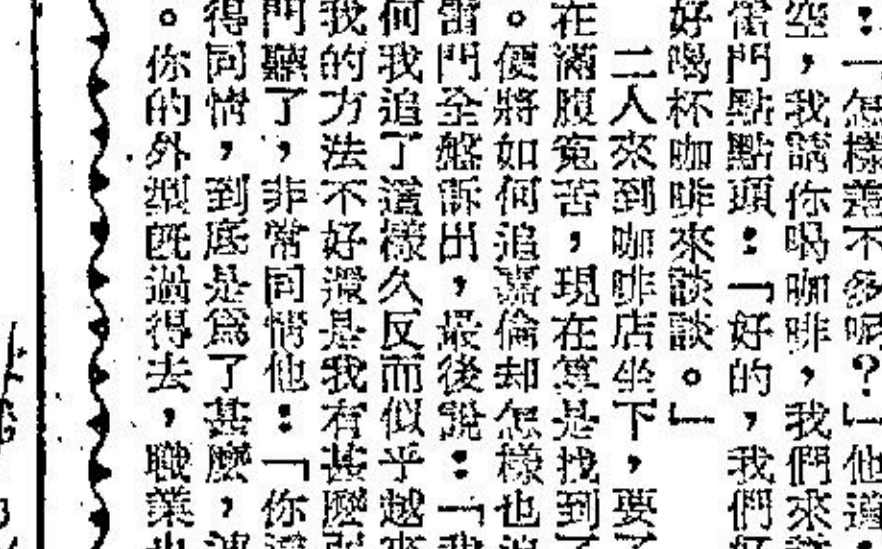 ：「怎樣差不多呢？」他道：
空，我請你喝咖啡，我們來談
雷門點點頭：「好的，我們好
好喝杯咖啡來談談。」
二人來到咖啡店坐下，要了
在滿腹寃苦，現在算是找到了
。便將如何追嘉倫却怎樣也追
雷門全盤訴出，最後說：「我
何我追了這樣久反而似乎越來
我的方法不好還是我有甚麼弱
門聽了，非常同情他：「你
得同情，到底是爲了甚麼，
。你的外型旣過得去，職業也